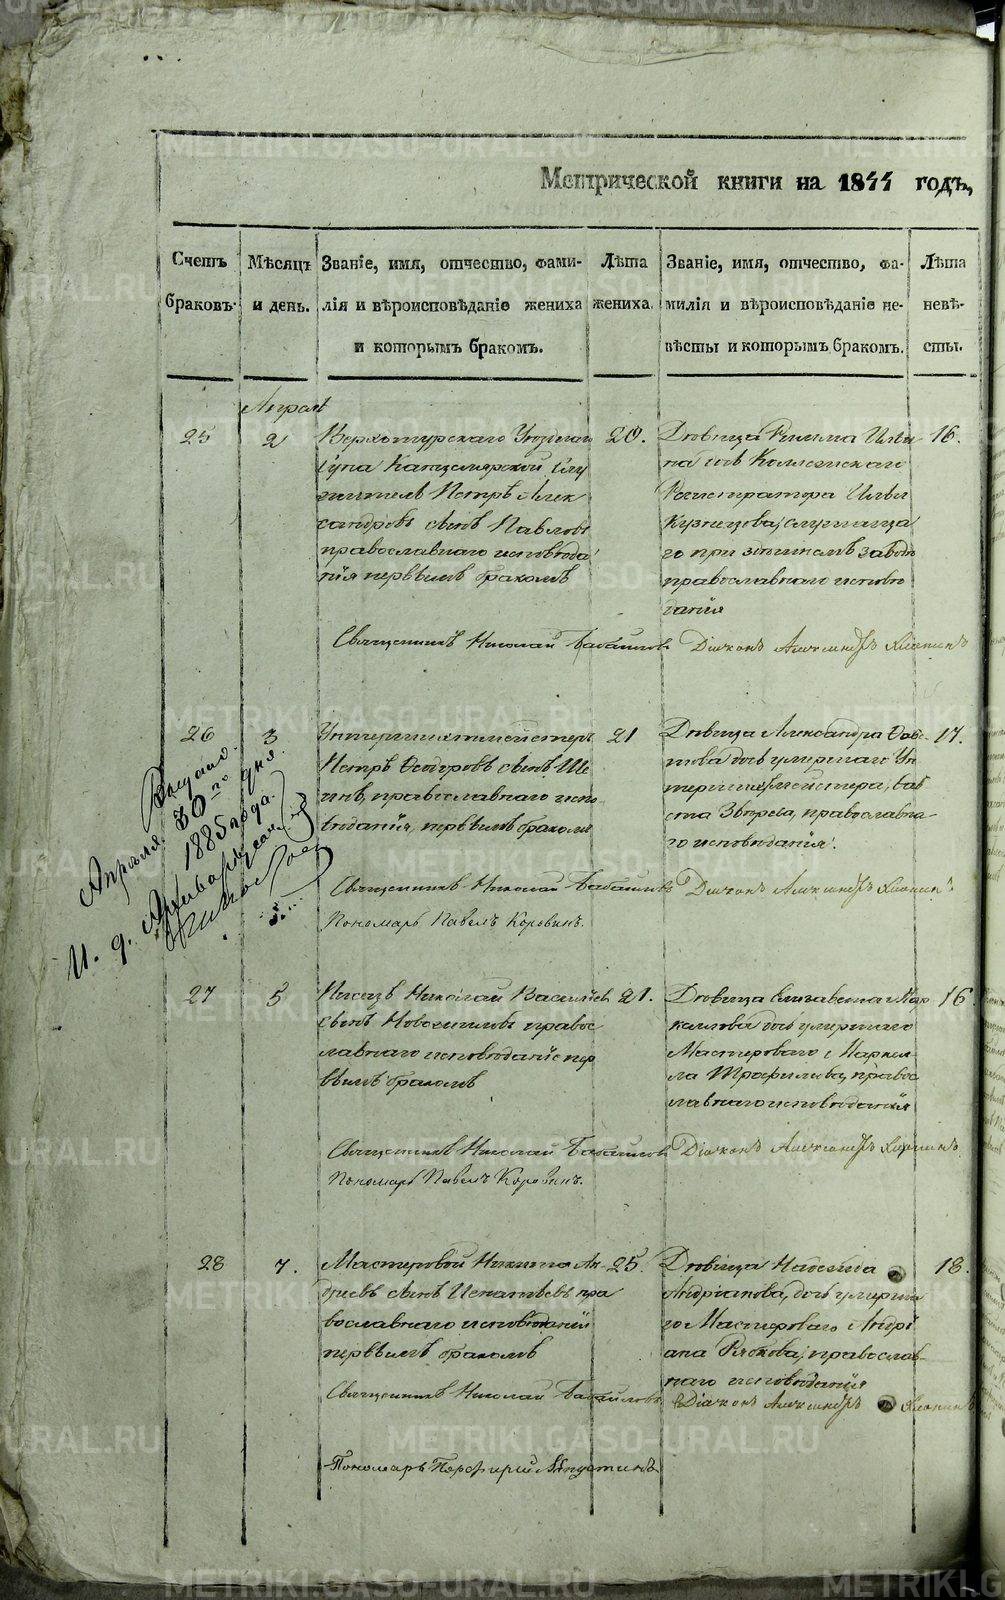 Метрической книги на 1844 годъ,
Счетъ браковъ.
Мѣсяцъ и день.
Званіе, имя, отчество, фами-
лія и вѣроисповѣданіе жениха
и которымъ бракомъ.
Лѣта
жениха.
Званіе, имя, отчество, фа-
милія и вѣроисповѣданіе не-
вѣсты и которымъ бракомъ.
Лѣта
невѣ-
сты.
Апрѣля
25
2
Верхотурскаго Уѣзднаго
Суда Канцелярской Слу
житель Петръ Алек
сандровъ сынъ Павловъ
православнаго исповѣда
нія первымъ бракомъ
20.
Дѣвица Римма Ильи
на дочь Коллежскаго
Регистратора Ильи
Кузнецова, служаща
го при здѣшнемъ заводѣ
православнаго исповѣ
данія
16.
Священникъ Николай Діаконъ Александръ
26
3
Унтершихтмейстеръ
Петръ Ѳедоровъ сынъ Ше
инъ, православнаго испо-
вѣданія, первымъ бракомъ
21
Дѣвица Александра Сав-
тева дочь умершаго Ун
тершихтмейстера, Сав
Звѣрева, православна-
го исповѣданія.
17.
Выдано
Апрѣля 30го дня
1885 года.
И. д. Архиваріуса
Священникъ Николай Діаконъ Александръ
Пономарь Павелъ Коровинъ.
27
5
Писецъ Николай Василіев
сынъ Новосиловъ правос
лавнаго исповѣданія пер
вымъ бракомъ
21.
Дѣвица Елизавета Мар
келова дочь умершаго
Мастероваго Марке-
ла Трофимова, правос
лавнаго исповѣданія
16.
Священникъ Николай Діаконъ Александръ
Пономарь Павелъ Коровинъ.
28
7.
Мастеровой Никита Ан-
дреевъ сынъ Игнатьевъ пра
вославнаго исповѣданія
первымъ бракомъ
25.
Дѣвица Надежда
Андріанова, дочь умерша
го Мастероваго Андрі
ана Рябкова, православ-
наго исповѣданія
18.
Священникъ Николай Діаконъ Александръ
Пономарь Порфирій
METRIKI.GASO-URAL.RU